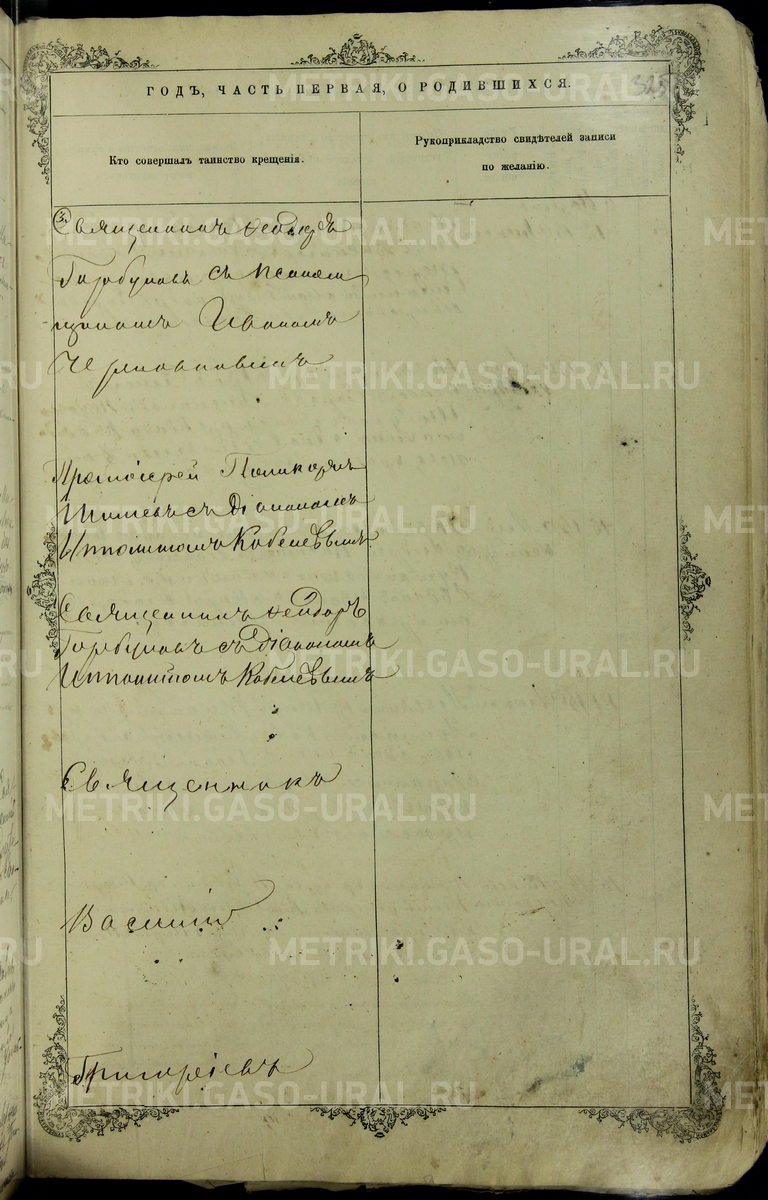 325
ГОДЪ, ЧАСТЬ ПЕРВАЯ, О РОДИВШИХСЯ.
Кто совершалъ таинство крещенія.
Рукоприкладство свидѣтелей записи
по желанію.
Священникъ Ѳеодоръ
Горбуновъ съ псалом
щикомъ Иваномъ
Протоіерей Поликарпъ
съ Діакономъ
Ипполитомъ Кобелевымъ
Священникъ Ѳеодоръ
Горбуновъ съ Діакономъ
Ипполитомъ Кобелевымъ
Священникъ
Василій
Григорьевъ
METRIKI.GASO-URAL.RU